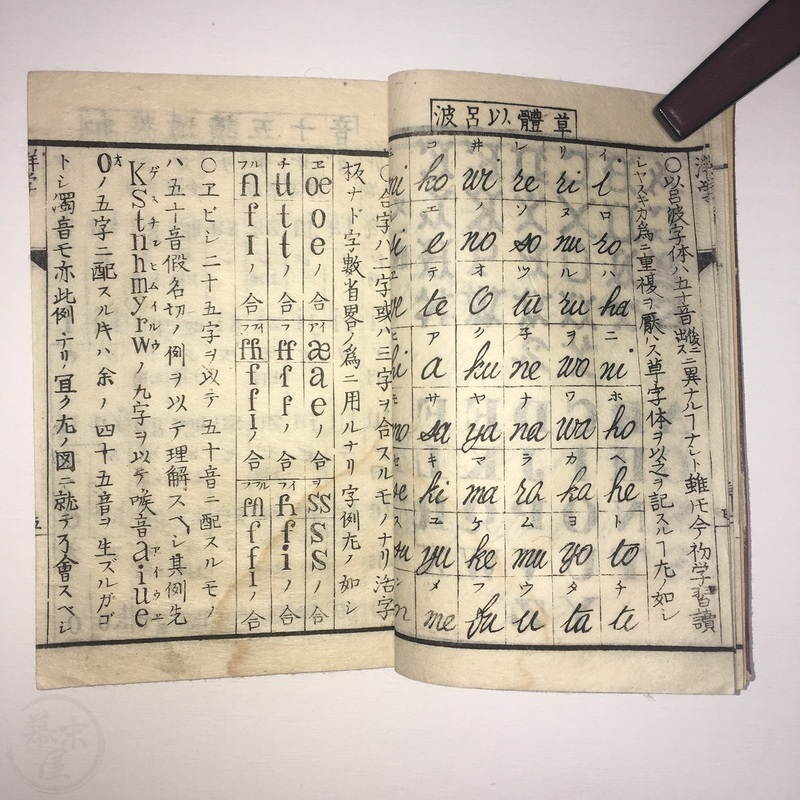 草體以呂波
○以呂波字体ハ五十音後ニ出スニ異ナルヿナシト雖モ今初学習讀
シヤスキカ為ニ重複ヲ厭ハス草字体ヲ以之ヲ記スルヿ左ノ如シ
イ i ロ ro ハ ha ニ ni ホ ho ヘ he ト to チ ti
リ ri ヌ nu ル ru ヲ wo ワ wa カ ka ヨ yo タ ta
レ re ソ so ツ tu 子 ne ナ na ラ ra ム mu ウ u
井 wi ノ no オ O ク ku ヤ ya マ ma ケ ke フ fu
コ ko エ e テ te ア a サ sa キ ki ユ yu メ me
○合字ハ二字或ハ三字ヲ合スルモノナリ活字
板ナド字數省畧ノ為ニ用ルナリ字例左ノ如シ
ヱ œ o e ノ合 アイ æ a e ノ合 ヲ ss s s ノ合
チ tt t t ノ合 フ ff f f ノ合 フイ fi f i ノ合
フル fl f l ノ合 フフイ ffi f f i ノ合 フフル ffl f f l ノ合
○ヱビシ二十五字ヲ以テ五十音ニ配スルモノ
ハ五十音假名切ノ例ヲ以テ理解スベシ其例先
KStnhmyrwノ九字ヲ以テ喉音aiue
Oノ五字ニ配スル片ハ余ノ四十五音ヲ生ズルガゴ
トシ濁音モ亦此例ナリ宜ク左ノ図ニ就テ了會スベシ
幕末屋